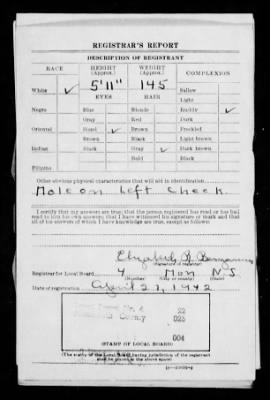 REGISTRAR'S REPORT
DESCRIPTION OF REGISTRANT
RACE HEIGHT (Approx.) WEIGHT (Approx.) COMPLEXION
5'11" 145
White ✓ Sallow
EYES HAIR Light
Negro Blue Blonde Ruddy ✓
Gray Red Dark
Oriental Hazel ✓ Brown Freckled
Brown Black Light brown
Indian Black Gray ✓ Dark brown
Bald Black
Filipino
Other obvious physical characteristics that will aid in identification
Mole on left Cheek.
I certify that my answers are true; that the person registered has read or has had
read to him his own answers; that I have witnessed his signature or mark and that
all of his answers of which I have knowledge are true, except as follows:
Elizabeth R.
(Signature of registrar)
Registrar for Local Board 4 Mon N.J.
(Number) (City or county) (State)
Date of registration April 27, 1942
No. 4 22
County 025
004
(STAMP OF LOCAL BOARD)
(The stamp of the Local Board having jurisdiction of the registrant
shall be placed in the above space.)